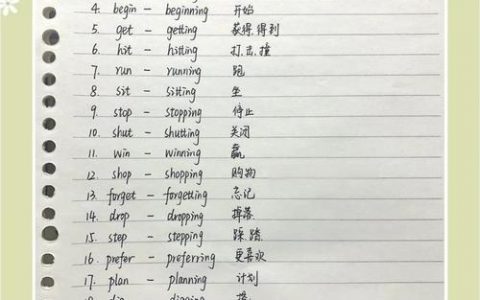 4. begin - beginning 开始
5. get - getting 获得,得到
6. hit - hitting 打,击,撞
7. run - running 跑
8. sit - sitting 坐
9. stop - stopping 停止
10. shut - shutting 关闭
11. win - winning 赢
12. shop - shopping 购物
13. forget - forgetting 忘记
14. drop - dropping 掉落
15. step - stepping 踩,踏
16. prefer - preferring 更喜欢
17. plan - planning 计划